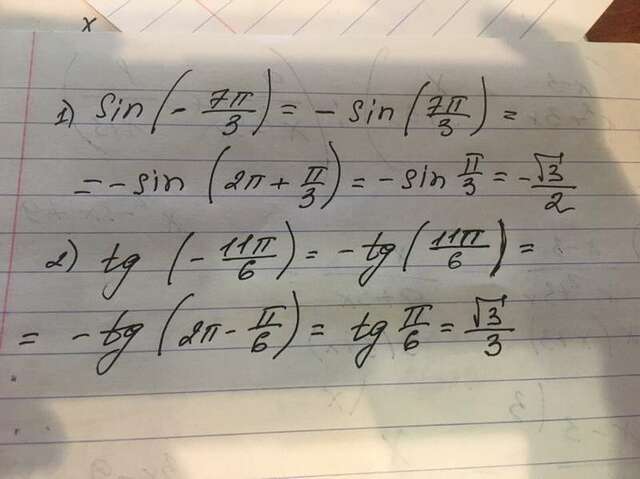 x
1) sin (- 7π/3) = - sin (7π/3) =
= - sin (2π + π/3) = - sin π/3 = - √3/2
2) tg (- 11π/6) = - tg (11π/6) =
= - tg (2π - π/6) = tg π/6 = √3/3